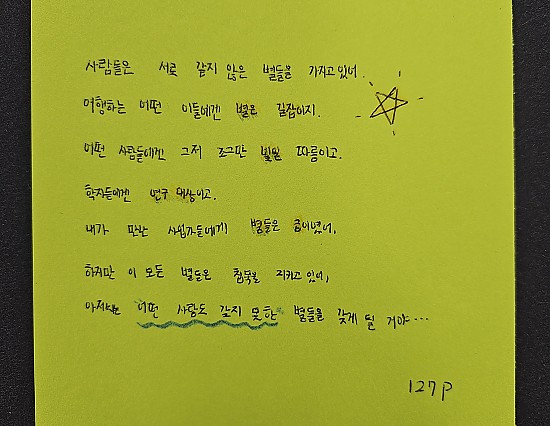 사람들은 서로 같지 않은 별들을 가지고 있어.
여행하는 어떤 이들에겐 별은 길잡이지.
어떤 사람들에겐 그저 조그만 빛일 따름이고.
학자들에겐 연구 대상이고.
내가 만난 사업가들에게 별들은 금이었어.
하지만 이 모든 별들은 침묵을 지키고 있어.
아저씨는 어떤 사람도 갖지 못한 별들을 갖게 될 거야...
127p